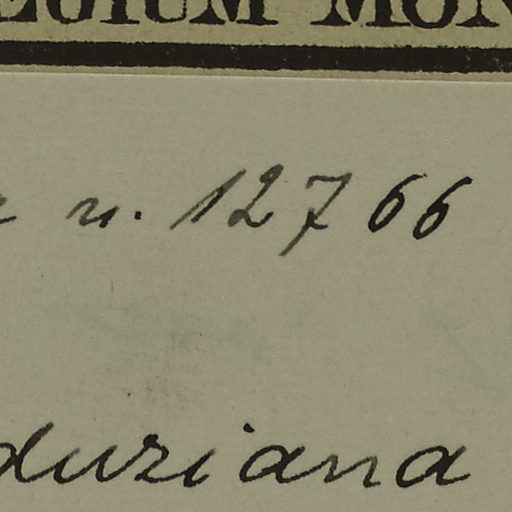 EGIUM MON
n. 12766
duziana